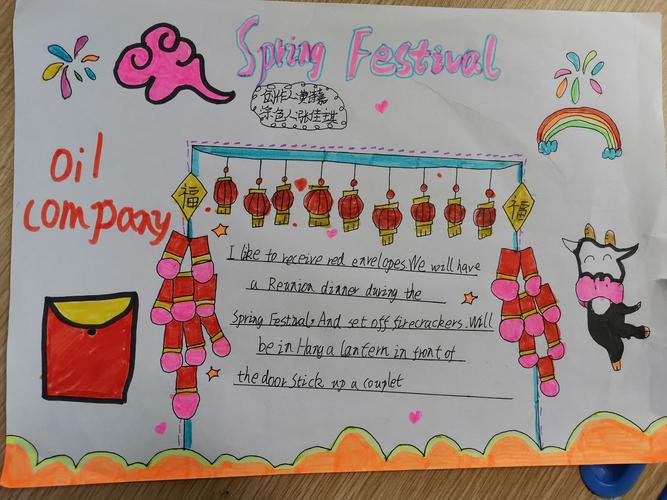 Spring Festival
创作人
涂色人张佳
oil
company
福
福
I like to receive red envelopes. We will have
a Reunion dinner during the
Spring Festival. And set off firecrackers. Will
be in Hang a lantern in front of
the door stick up a couplet